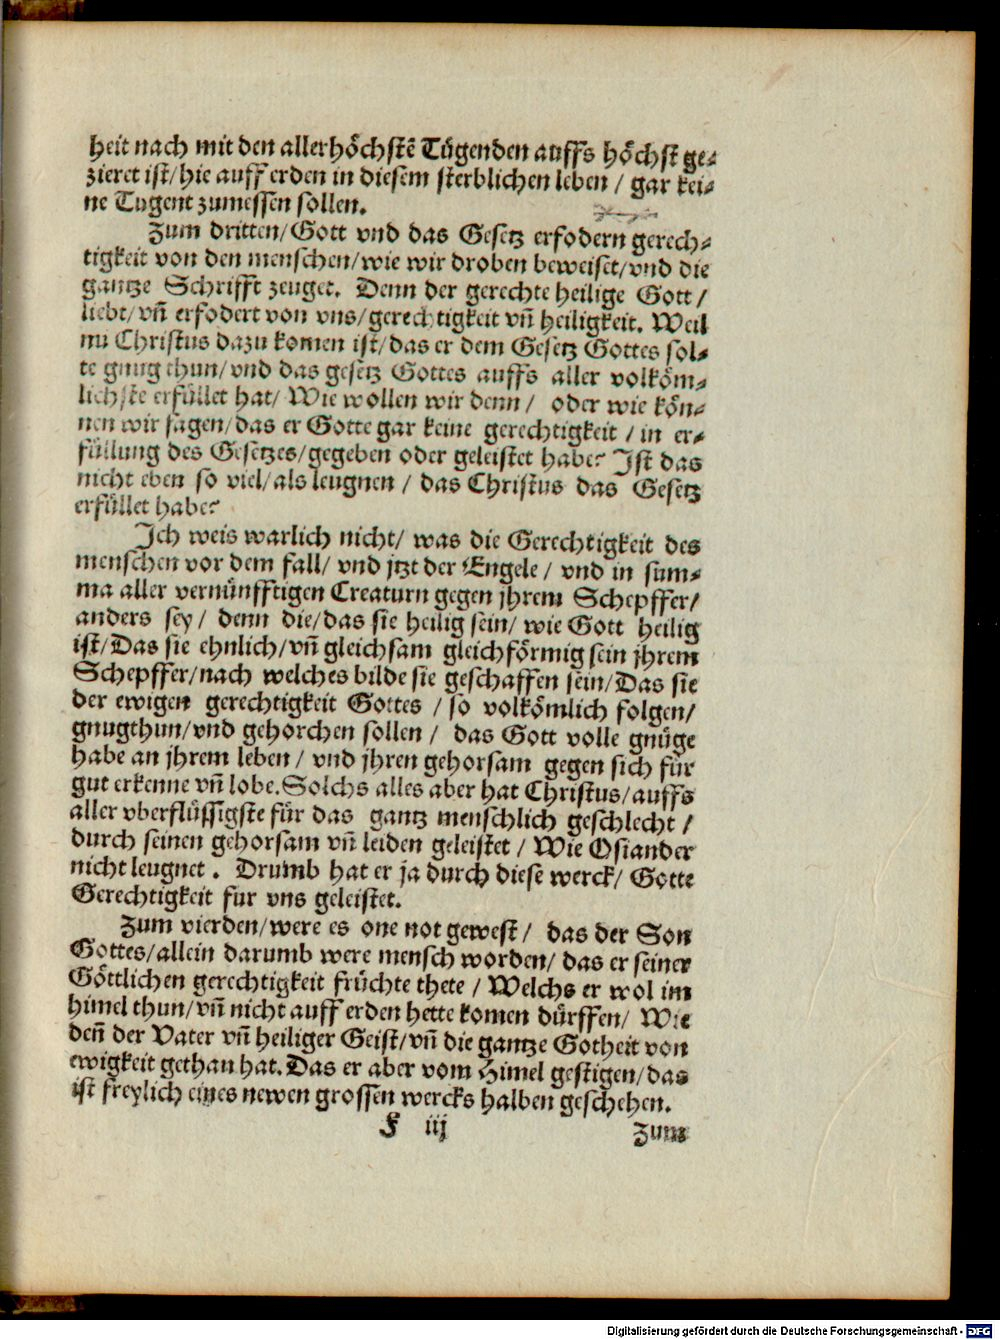 heit nach mit den allerhöchstẽ Tügenden auffs höchst ge-
zieret ist/hie auff erden in diesem sterblichen leben / gar kei-
ne Tugent zumessen sollen.
Zum dritten/Gott vnd das Gesetz erfodern gerech-
tigkeit von den menschen/wie wir droben beweiset/vnd die
gantze Schrifft zeuget. Denn der gerechte heilige Gott /
liebt/vñ erfodert von vns/gerechtigkeit vñ heiligkeit. Weil
nu Christus dazu komen ist/das er dem Gesetz Gottes sol-
te gnug thun/vnd das gesetz Gottes auffs aller volköm-
lichste erfüllet hat/ Wie wollen wir denn / oder wie kön-
nen wir sagen/das er Gotte gar keine gerechtigkeit / in er-
füllung des Gesetzes/gegeben oder geleistet habe? Ist das
nicht eben so viel/als leugnen / das Christus das Gesetz
erfüllet habe?
Ich weis warlich nicht/ was die Gerechtigkeit des
menschen vor dem fall/ vnd jtzt der Engele / vnd in sum-
ma aller vernünfftigen Creaturn gegen jhrem Schepffer/
anders sey / denn die/das sie heilig sein/ wie Gott heilig
ist/Das sie ehnlich/vñ gleichsam gleichförmig sein jhrem
Schepffer/nach welches bilde sie geschaffen sein/Das sie
der ewigen gerechtigkeit Gottes / so volkömlich folgen/
gnugthun/vnd gehorchen sollen / das Gott volle gnüge
habe an jhrem leben / vnd jhren gehorsam gegen sich für
gut erkenne vñ lobe. Solchs alles aber hat Christus/auffs
aller vberflüssigste für das gantz menschlich geschlecht /
durch seinen gehorsam vñ leiden geleistet / Wie Osiander
nicht leugnet . Drumb hat er ja durch diese werck/ Gotte
Gerechtigkeit fur vns geleistet.
Zum vierden/were es one not gewest / das der Son
Gottes/allein darumb were mensch worden/ das er seiner
Göttlichen gerechtigkeit früchte thete / Welchs er wol im
himel thun/vñ nicht auff erden hette komen dürffen/ Wie
deñ der Vater vñ heiliger Geist/vñ die gantze Gotheit von
ewigkeit gethan hat. Das er aber vom Himel gestigen/das
ist freylich eines newen grossen wercks halben geschehen.
F iij Zum
Digitalisierung gefördert durch die Deutsche Forschungsgemeinschaft - DFG